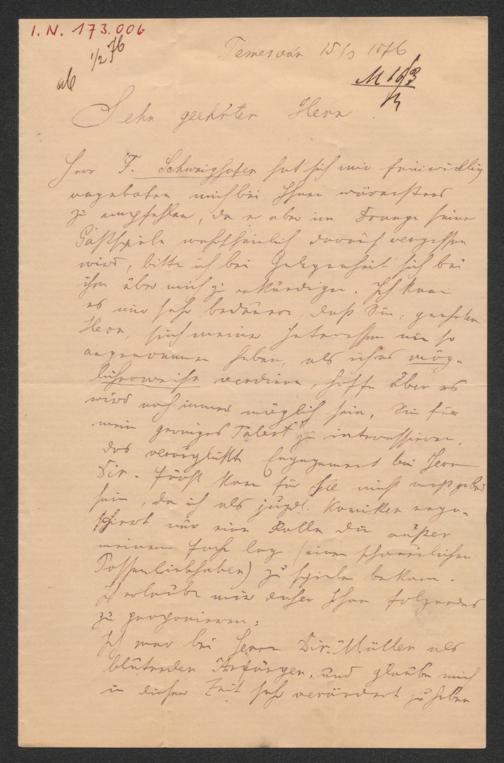 I. N. 173.006
ab 1/2 76
Temesvár 15/3 1876
Sehr geehrter Herr
Herr F. Schweighofer hat sich mir freiwillig
angeboten mich bei Ihnen wärmstens
zu empfehlen, da er aber im Drange seiner
Gastspiele wahrscheinlich darauf vergessen
wird, bitte ich bei Gelegenheit sich bei
ihm über mich zu erkundigen. Ich kann
es nur sehr bedauern, daß Sie, geehrter
Herr, sich meiner Interessen nie so
angenommen haben, als ich es mög-
licherweise verdiene, hoffe aber es
wird noch immer möglich sein, Sie für
mein geringes Talent zu interessieren.
Das verunglückte Engagement bei Herrn
Dir. kann für Sie nicht maßgebend
sein, da ich als jugdl. Komiker enga-
giert nur eine Rolle die außer
meinem Fach lag (einen
Possenliebhaber) zu spielen bekam.
Ich erlaube mir daher Ihnen folgendes
zu proponieren:
Ich war bei Herrn Dir. Müller als
blutender Anfänger, und glaube mich
in dieser Zeit sehr verändert zu haben